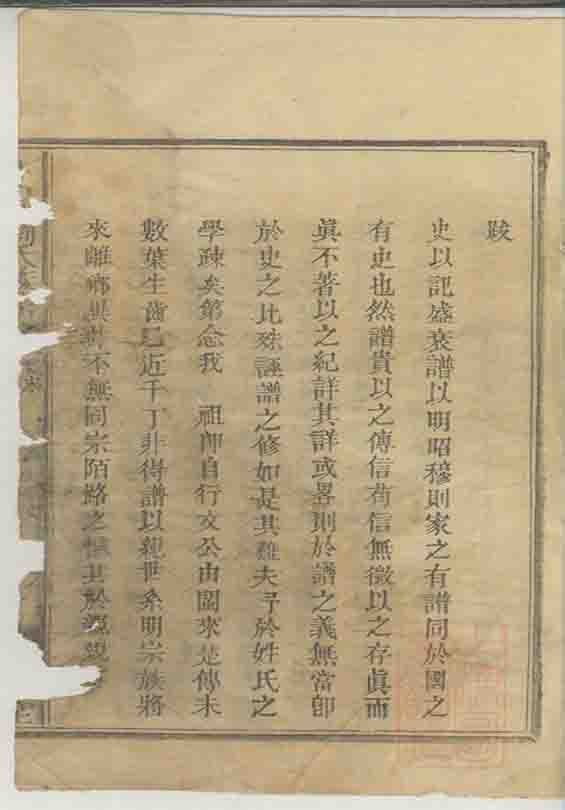 跋
史以記盛衰譜以明昭穆則家之有譜同於國之
有史也然譜貴以之傳信苟信無徵以之存眞而
眞不著以之紀詳其詳或畧則於譜之義無當卽
於史之比殊誣譜之修如是其難夫予於姓氏之
學疎矣第念我　祖卽自行文公由閩來楚傳未
數葉生齒已近千丁非得譜以親世系明宗族將
來離鄉異井不無同宗陌路之慨其於源親